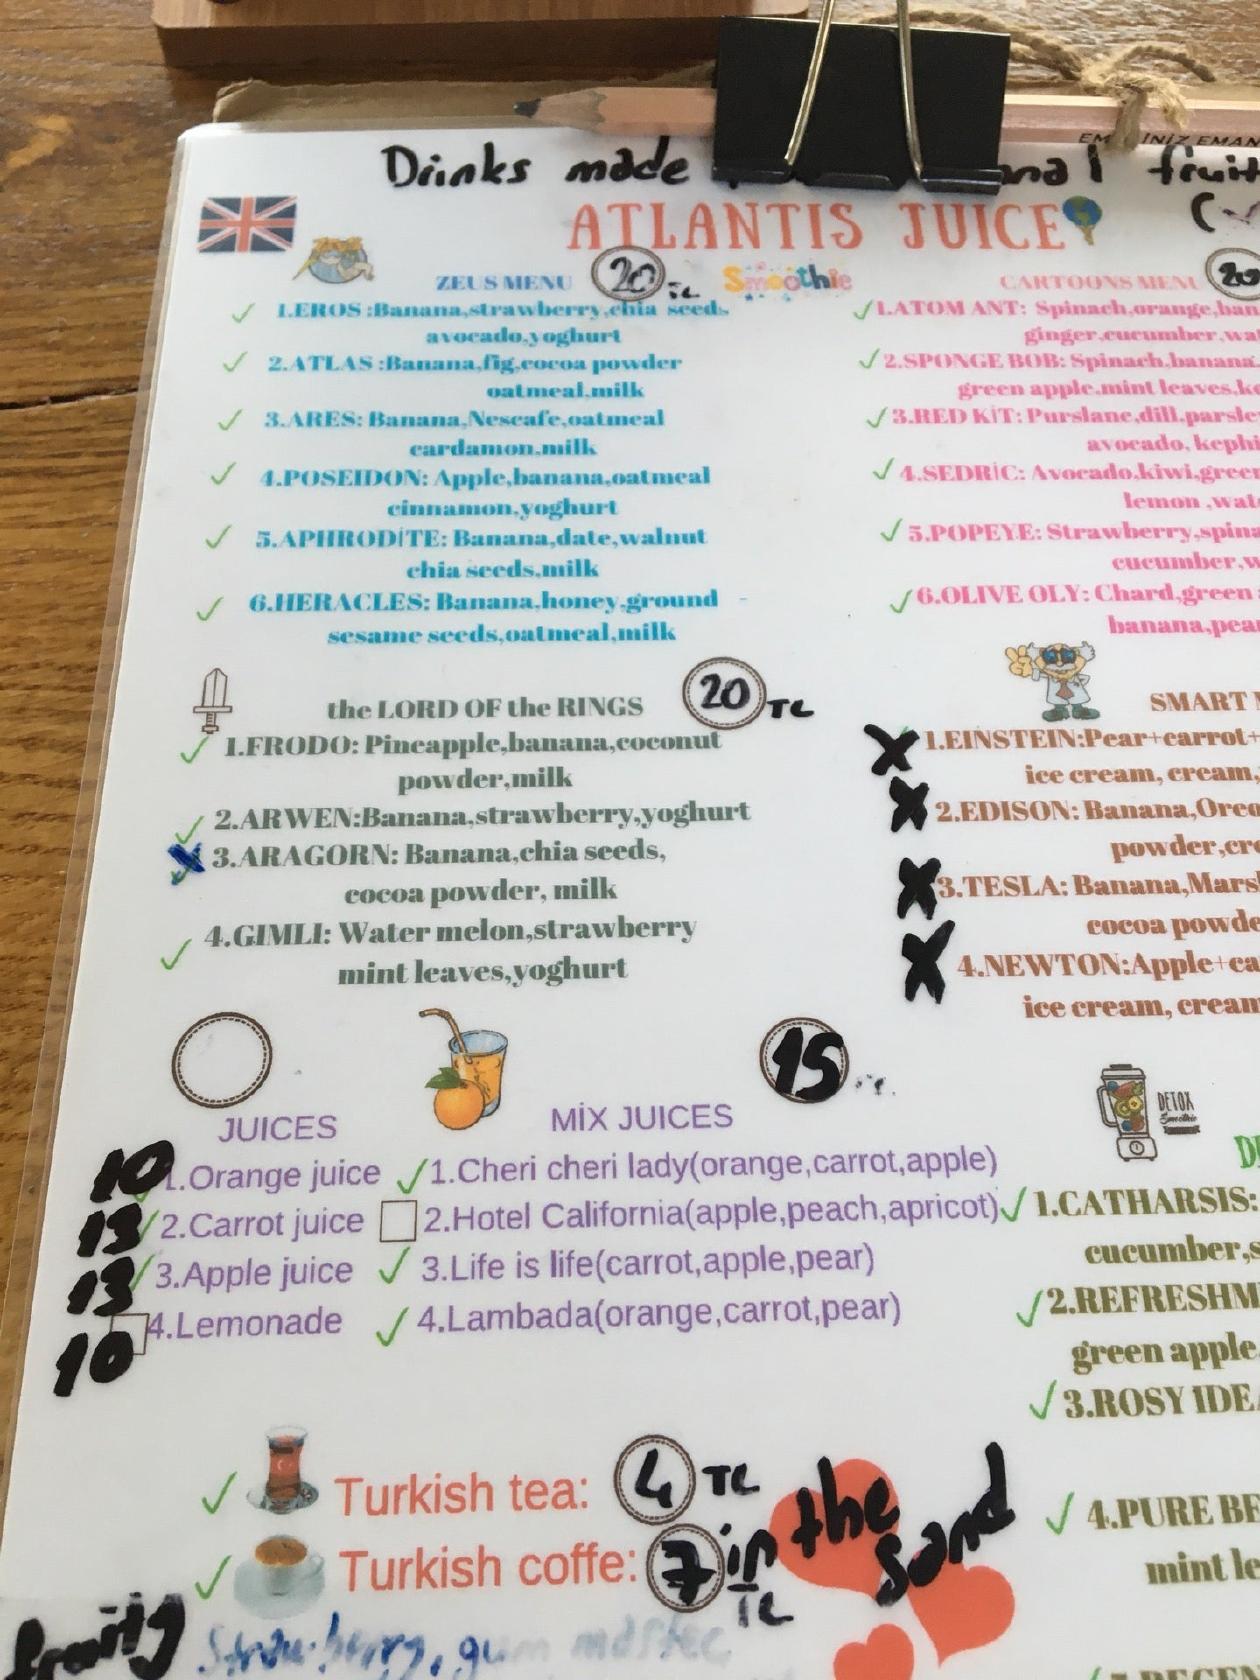 Drinks made
fruit
ATLANTIS JUICE
ZEUS MENU 20 TL Smoothie
1.EROS :Banana,strawberry,chia seeds
avocado,yoghurt
2.ATLAS :Banana,fig,cocoa powder
oatmeal,milk
3.ARES: Banana,Nescafe,oatmeal
cardamon,milk
4.POSEIDON: Apple,banana,oatmeal
cinnamon,yoghurt
5.APHRODİTE: Banana,date,walnut
chia seeds,milk
6.HERACLES: Banana,honey,ground
sesame seeds,oatmeal,milk
CARTOONS MENU 20
1.ATOM ANT: Spinach,orange,ban
ginger,cucumber,wa
2.SPONGE BOB: Spinach,banana,
green apple,mint leaves,ke
3.RED KİT: Purslane,dill,parsle
avocado, kephi
4.SEDRİC: Avocado,kiwi,green
lemon ,wat
5.POPEYE: Strawberry,spina
cucumber,w
6.OLIVE OLY: Chard,green
banana,pea
the LORD OF the RINGS 20 TL
1.FRODO: Pineapple,banana,coconut
powder,milk
2.ARWEN:Banana,strawberry,yoghurt
3.ARAGORN: Banana,chia seeds,
cocoa powder, milk
4.GIMLI: Water melon,strawberry
mint leaves,yoghurt
SMART
1.EINSTEIN:Pear+carrot+
ice cream, cream,
2.EDISON: Banana,Oreo
powder,cre
3.TESLA: Banana,Marsh
cocoa powde
4.NEWTON:Apple+ca
ice cream, cream
JUICES
10 1.Orange juice
13 2.Carrot juice
13 3.Apple juice
10 4.Lemonade
15
MİX JUICES
1.Cheri cheri lady(orange,carrot,apple)
2.Hotel California(apple,peach,apricot)
3.Life is life(carrot,apple,pear)
4.Lambada(orange,carrot,pear)
DETOX
Smoothie
1.CATHARSIS:
cucumber,s
2.REFRESHM
green apple,
3.ROSY IDEA
4.PURE BE
mint le
Turkish tea: 4 TL
Turkish coffe: 7 TL in the sand
Strawberry, gum